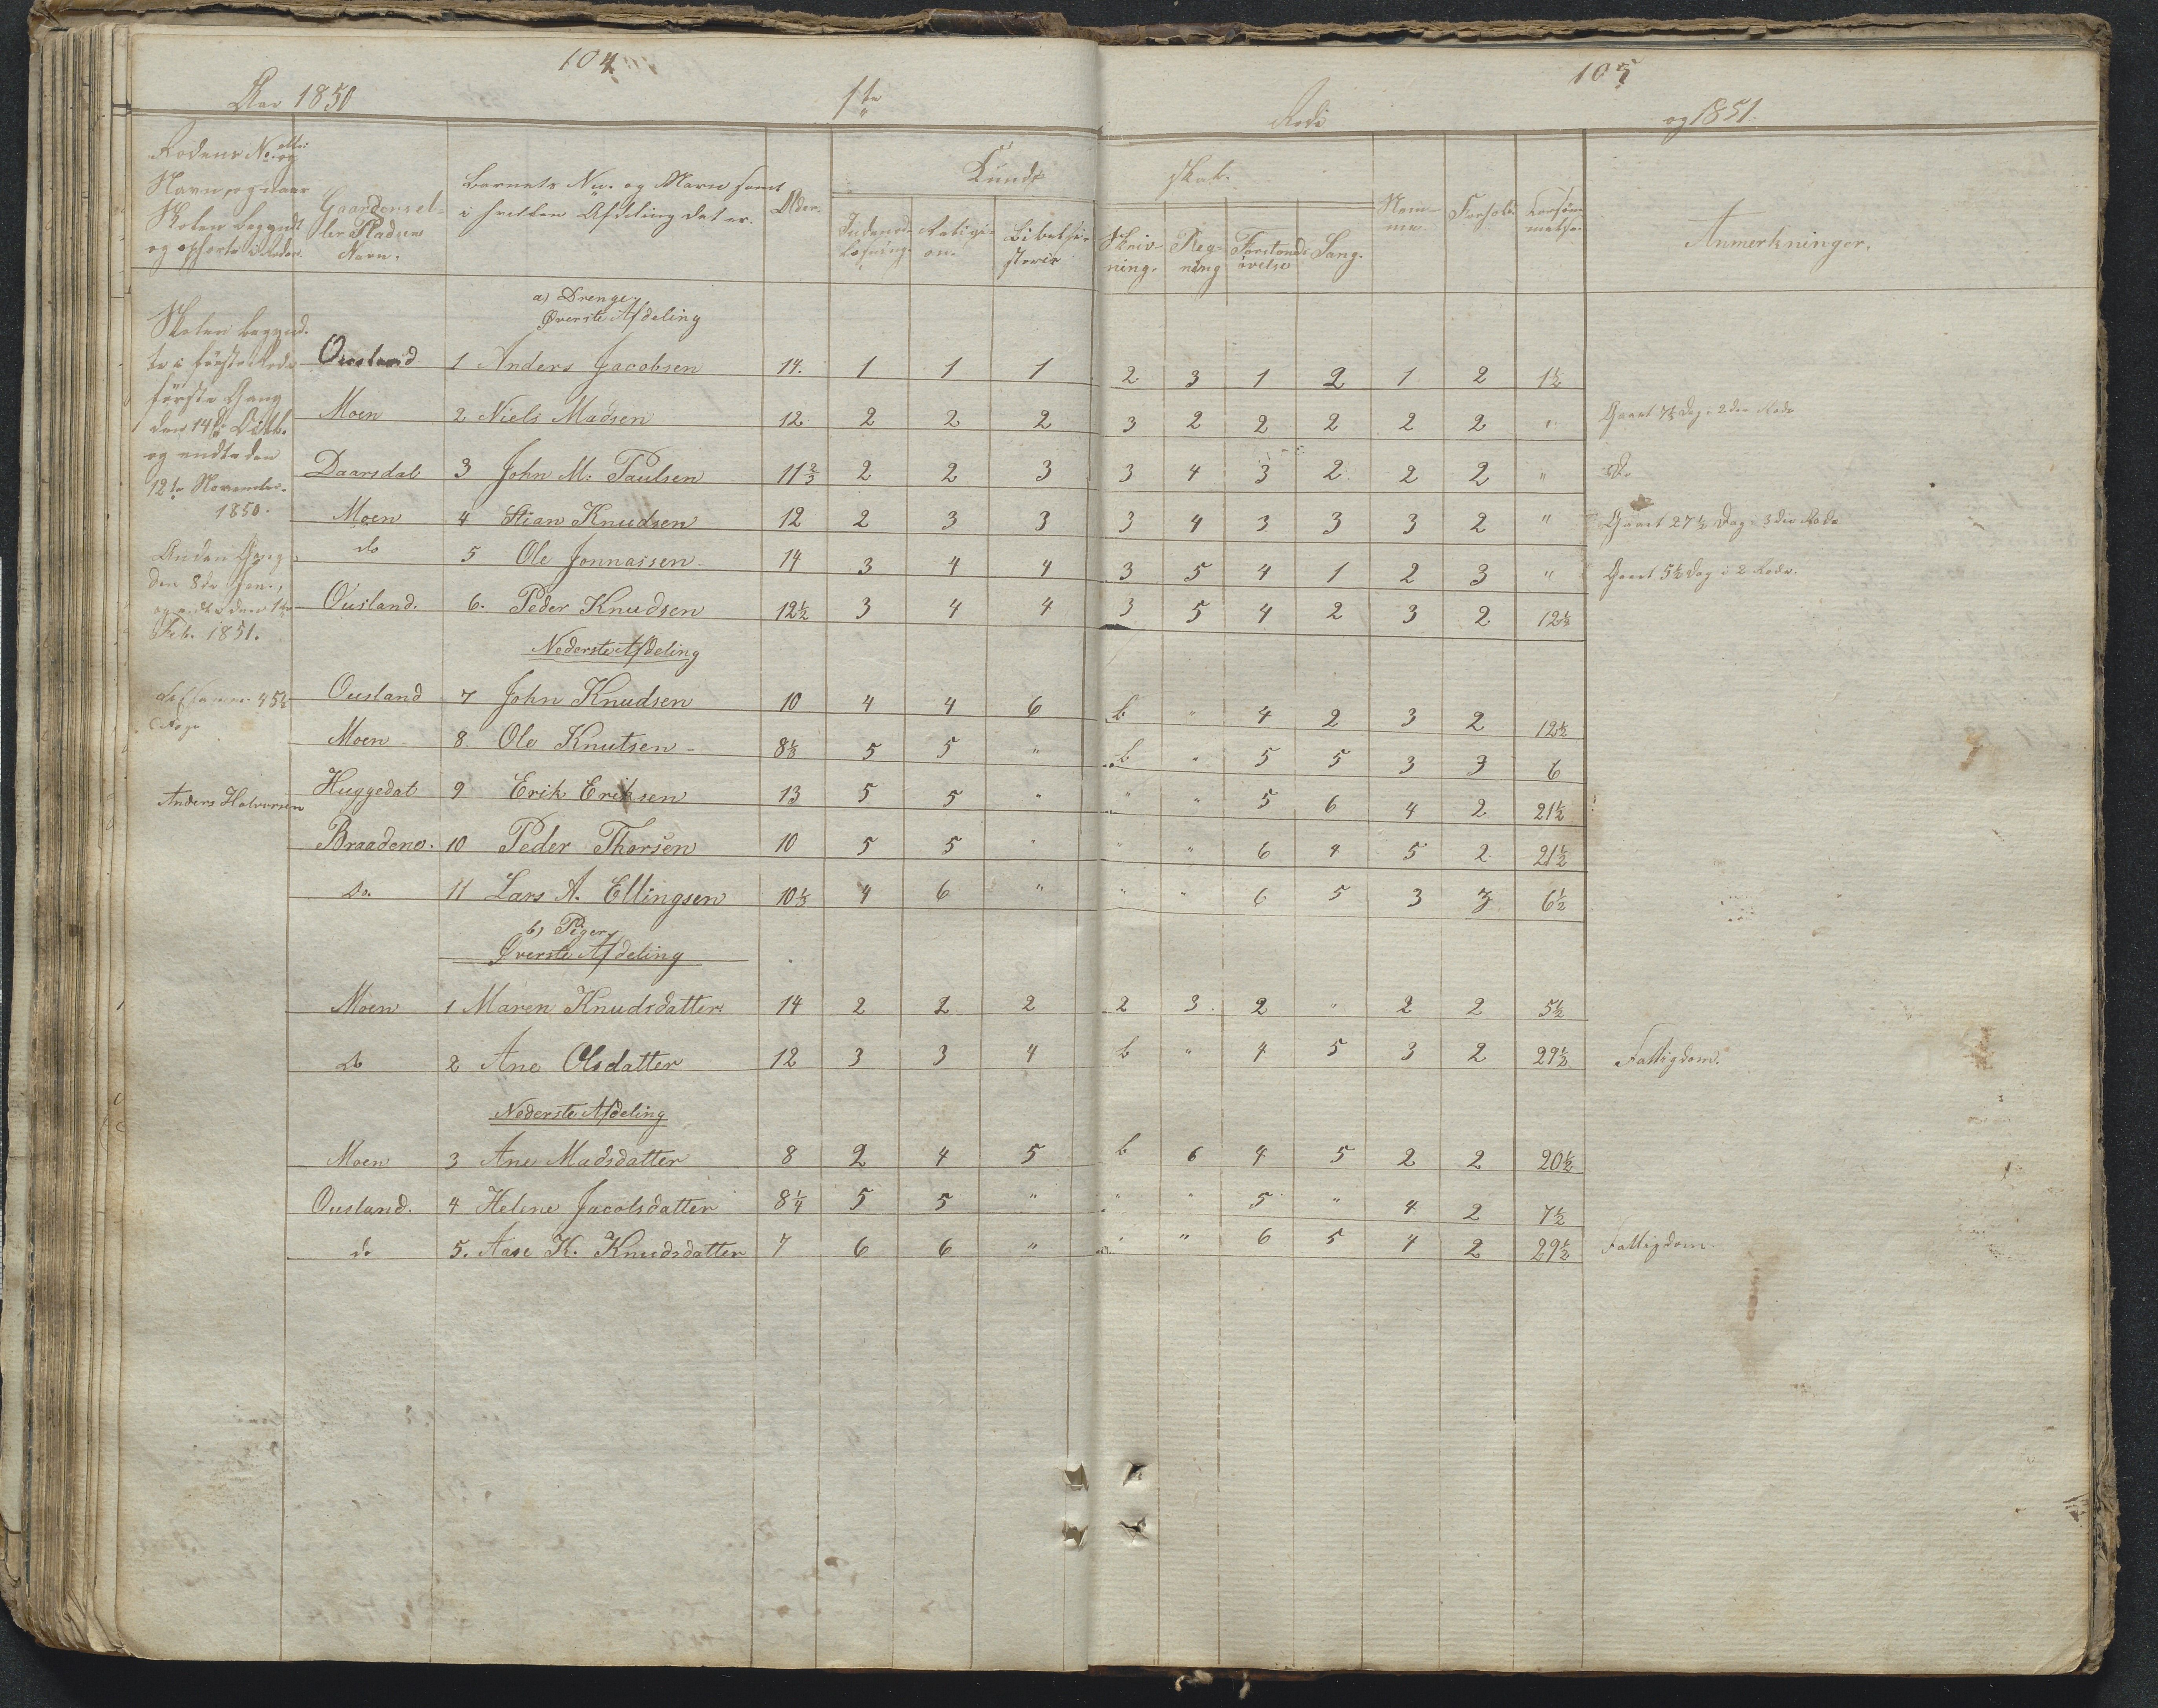 104
Aar 1850
1ste
105
Rode
og 1851.
Rodens No. og
Navn, og naar
Skolen begyndt
og ophørte i Roden.
Gaardens el-
ler Pladsens
Navn.
Barnets No. og Navn samt
i hvilken Afdeling det er.
Alder.
Kund-
skab.
Indenad-
læsning.
Religi-
on.
Bibelhi-
storie
Skriv-
ning.
Reg-
ning
Forstands
øvelse
Sang.
Nem-
me.
Forhold.
Forsøm-
melse.
Anmerkninger.
Skolen begynd-
te i første Rode
første Gang
den 14de Octb.
og endte den
12te November
1850.
Anden Gang
den 8de Jan.,
og endte den 1ste
Feb. 1851.
45½
Dage
Anders Halvorsen
a) Drenge
Øverste Afdeling
Ousland 1 Anders Jacobsen 14. 1 1 1 2 3 1 2 1 2 1½
Moen 2 Niels Madsen 12 2 2 2 3 2 2 2 2 2 " Gaaet 7½ Dag i 2den Rode
Daarsdal 3 John M. Paulsen 11⅔ 2 2 3 3 4 3 2 2 2 " Do
Moen 4 Stian Knudsen 12 2 3 3 3 4 3 3 3 2 " Gaaet 27½ Dag i 3die Rode
do 5 Ole Jonnassen 14 3 4 4 3 5 4 1 2 3 " Gaaet 5½ Dag i 2 Rode.
Ousland. 6. Peder Knudsen 12½ 3 4 4 3 5 4 2 3 2 12½
Nederste Afdeling
Ousland 7 John Knudsen 10 4 4 6 b " 4 2 3 2 12½
Moen 8 Ole Knutsen 8⅓ 5 5 " b " 5 5 3 3 6
Huggedal 9 Erik Eriksen 13 5 5 " " " 5 6 4 2 21½
Braadene. 10 Peder Thorsen 10 5 5 " " " 6 4 5 2 21½
Do. 11 Lars A. Ellingsen 10⅓ 4 6 " " " 6 5 3 3 6½
b) Piger
Øverste Afdeling
Moen 1 Maren Knudsdatter 14 2 2 2 2 3 2 " 2 2 5½
Do 2 Ane Olsdatter 12 3 3 4 b " 4 5 3 2 29½ Fattigdom.
Nederste Afdeling
Moen 3 Ane Madsdatter 8 2 4 5 b 6 4 5 2 2 20½
Ousland. 4 Helene Jacobsdatter 8¼ 5 5 " " " 5 " 4 2 7½
do 5. Aase K. Knudsdatter 7 6 6 " " " 6 5 4 2 29½ Fattigdom.